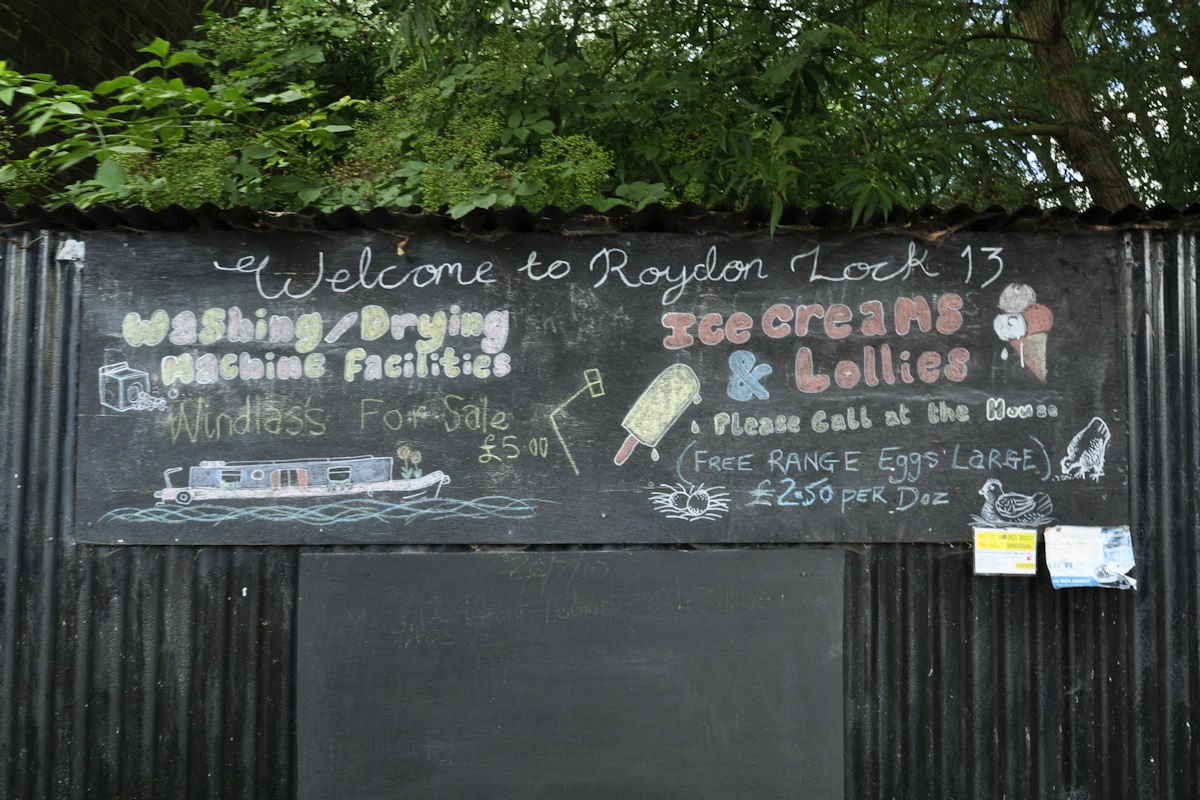 Welcome to Roydon Lock 13
Washing/Drying
Machine Facilities
Windlass's For Sale
£5.00
Ice creams
& Lollies
Please Call at the House
(FREE RANGE Eggs' LARGE)
£2.50 PER Doz